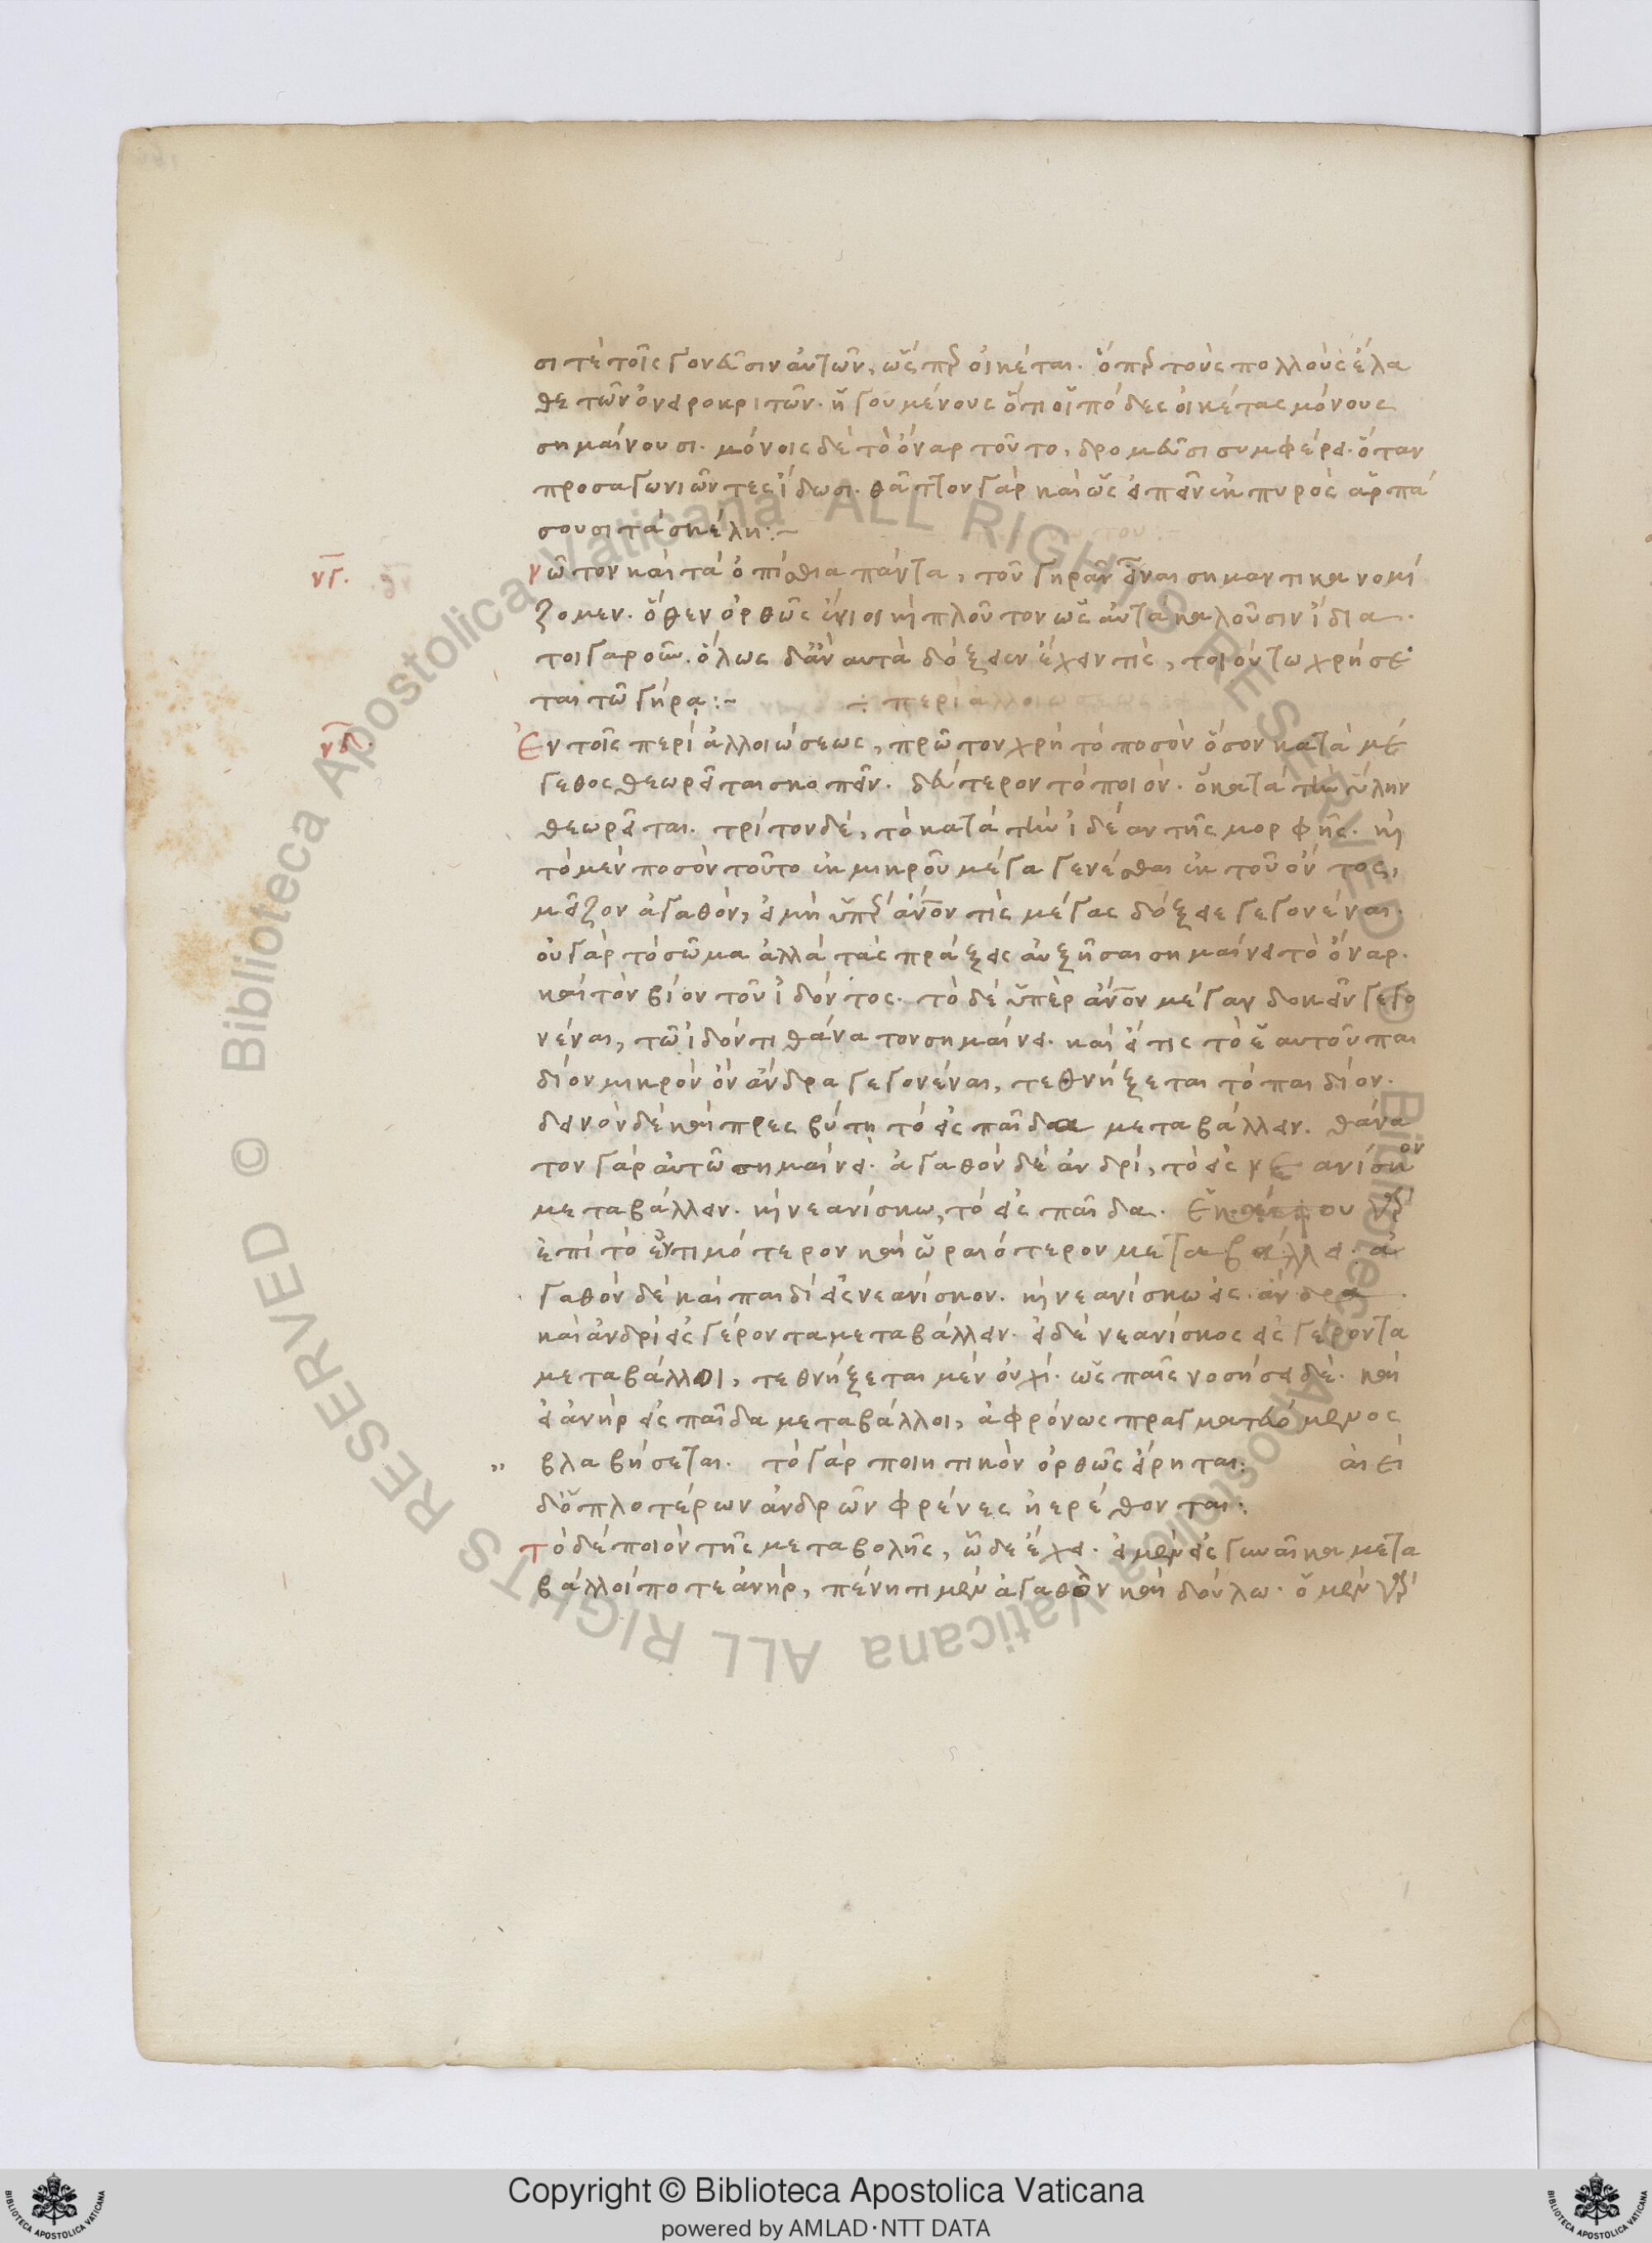 σι τὲ τοῖς γονεῦσιν αὐτῶν, ὥς περ οἰκέται. ὅπερ τοὺς πολλοὺς ἔλα
θε τῶν ὀνειροκριτῶν. ἡγουμένους ὅτι οἱ πόδες οἰκέτας μόνους
σημαίνουσι. μόνοις δὲ τὸ ὄναρ τοῦτο, δρομεῦσι συμφέρει. ὅταν
προσαγωνιῶντες ἴδωσι. θᾶττον γὰρ καὶ ὡς εἰπεῖν ἐκ πυρὸς ἁρπά
σουσι τὰ σκέλη:~
νγ. νῶτον καὶ τὰ ὀπίσθια πάντα, τοῦ γηρᾶν εἶναι σημαντικα νομί
ζομεν. ὅθεν ὀρθῶς ἔνιοι καὶ πλοῦτονως αὐτὰ καλοῦσιν ἴδια.
τοιγαροῦν. ὅλως δἂν αυτὰ δόξειεν ἔχειν τὶς, τοιούτω χρήσε
ται τῶ γήρα:~ περὶ αλλοιώσεως
νδ. Ἐν τοῖς περὶ ἀλλοιώσεως, πρῶτον χρὴ τὸ ποσὸν ὅσον κατὰ μέ
γεθος θεωρεῖται σκοπεῖν. δεύτερον τὸ ποιὸν. ὃ κατὰ τὴν ὕλην
θεωρεῖται. τρίτον δὲ, τὸ κατὰ τὴν ἰδέαν τῆς μορφῆς. καὶ
τὸ μὲν ποσὸν τοῦτο ἐκ μικροῦ μέγα γενέσθαι ἐκ τοῦ ὄντος,
μεῖζον ἀγαθὸν, εἰ μὴ ὑπὲρ ἄνον τὶς μέγας δόξειε γεγονέναι.
οὐ γὰρ τὸ σῶμα ἀλλὰ τὰς πράξεις αὐξῆσαι σημαίνει τὸ ὄναρ.
καὶ τὸν βίον τοῦ ἰδόντος. τὸ δὲ ὑπὲρ ἄνον μέγαν δοκεῖν γεγο
νέναι, τῶ ἰδόντι θάνατον σημαίνει. καὶ εἴ τις τὸ ἑαυτοῦ παι
δίον μικρὸν ὂν ἄνδρα γεγονέναι, τεθνήξεται τὸ παιδίον.
δεινὸν δὲ καὶ πρεσβύτη τὸ εἰς παῖδα μεταβάλλειν. θάνα
τον γὰρ αὐτῶ σημαίνει. ἀγαθὸν δὲ ἀνδρὶ, τὸ εἰς νε ανίσκον
μεταβάλλειν. καὶ νεανίσκω, τὸ εἰς παῖδα. γὰρ
ἐπὶ τὸ ἐντιμότερον καὶ ὡραιότερον μεταβάλλει. ἀ
γαθὸν δὲ καὶ παιδὶ εἰς νεανίσκον. καὶ νεανίσκω εἰς ἄνδρα
καὶ ἀνδρὶ εἰς γέροντα μεταβάλλειν. εἰ δὲ νεανίσκος εἰς γέροντα
μεταβάλλοι, τεθνήξεται μὲν οὐχὶ. ὡς παῖς νοσήσει δὲ. καὶ
εἰ ἀνὴρ εἰς παῖδα μεταβάλλοι, ἀφρόνως πραγματευόμενος
" βλαβήσεται. τὸ γὰρ ποιητικὸν ὀρθῶς εἴρηται: αἰεὶ
δὁπλοτέρων ἀνδρῶν φρένες ἠερέθονται:
Τὸ δὲ ποιὸν τῆς μεταβολῆς, ὧδε ἔχει. εἰ μὲν εἰς γυναῖκα μετα
βάλλοί ποτε ἀνὴρ, πένητι μὲν ἀγαθὸν καὶ δούλω. ὁ μὲν γὰρ
Copyright © Biblioteca Apostolica Vaticana
powered by AMLAD·NTT DATA
BIBLIOTECA APOSTOLICA VATICANA
BIBLIOTECA APOSTOLICA VATICANA
© Biblioteca Apostolica Vaticana ALL RIGHTS RESERVED © Biblioteca Apostolica Vaticana ALL RIGHTS RESERVED